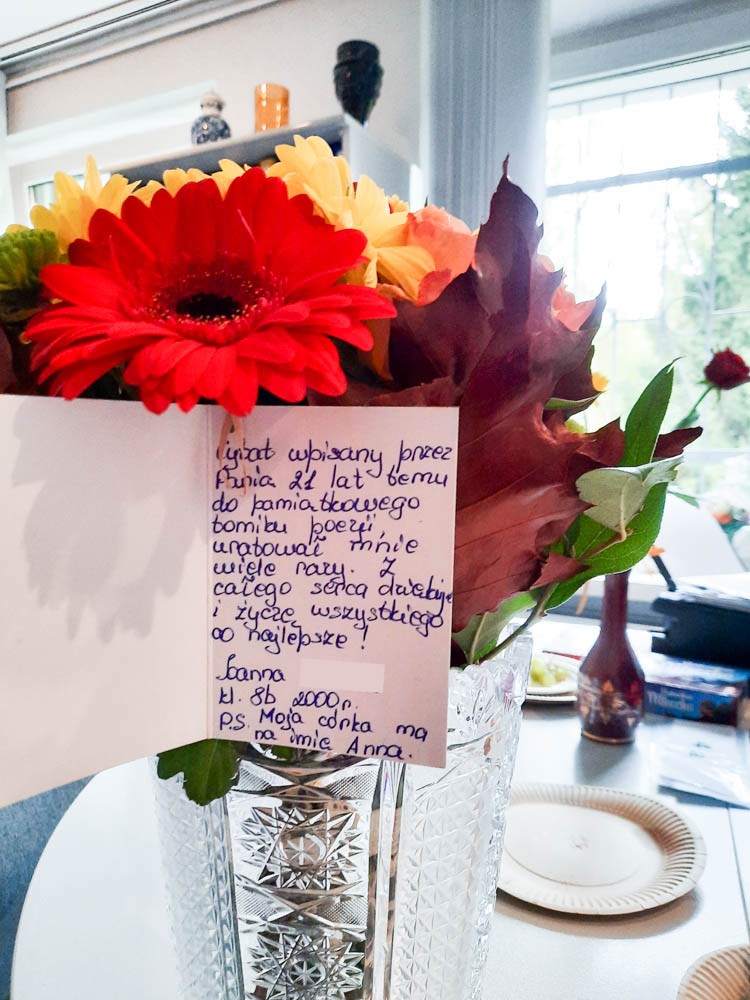 Cytat wpisany przez
Panią 21 lat temu
do pamiątkowego
tomiku poezji
uratował mnie
wiele razy. Z
całego serca dziękuję
i życzę wszystkiego
co najlepsze!
Joanna
kl. 8b 2000r.
P.S. Moja córka ma
na imię Anna.